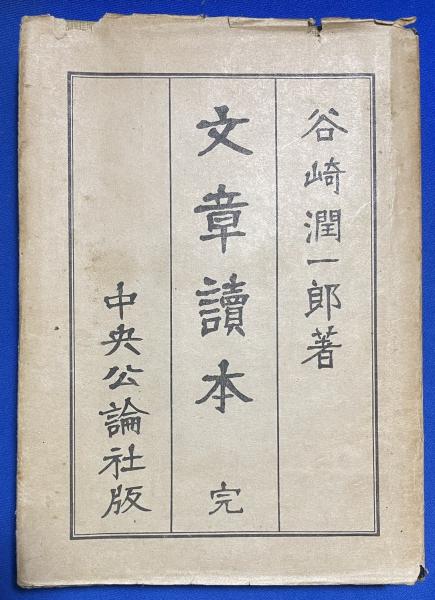 谷崎潤一郎著
文章讀本 完
中央公論社版